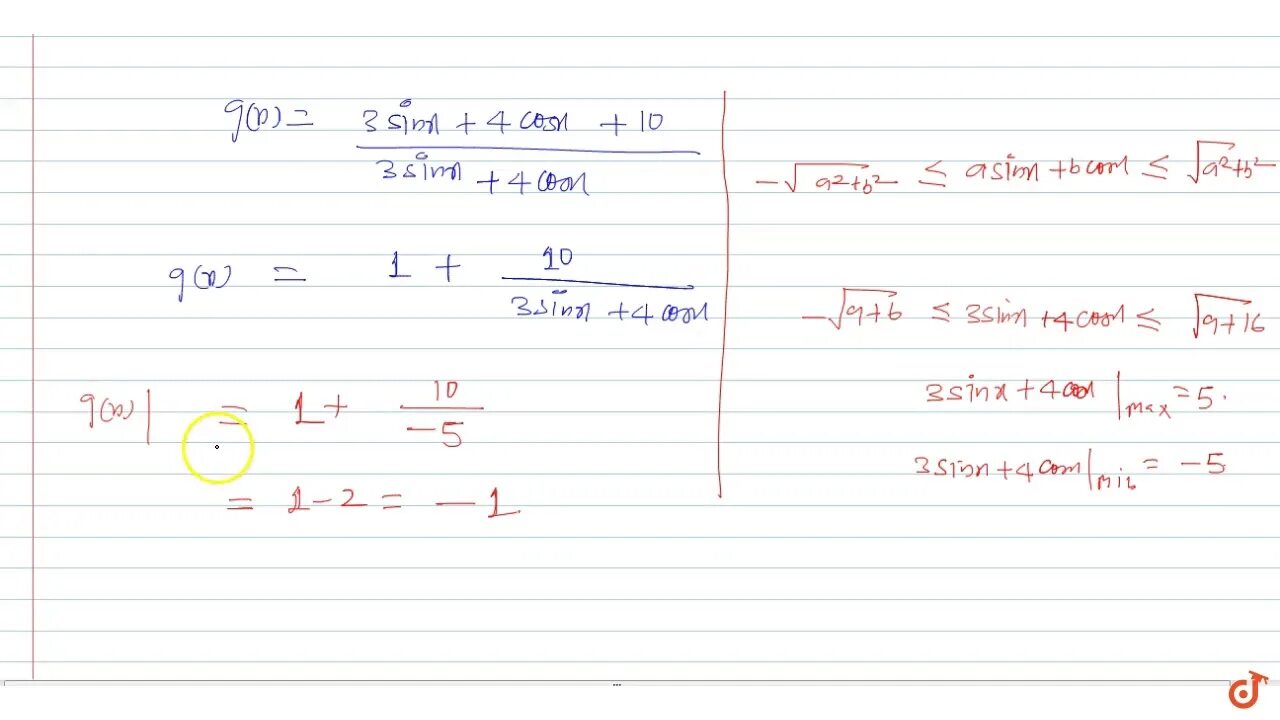 g(x) = (3 sinx + 4 cosx + 10) / (3 sinx + 4 cosx)
g(x) = 1 + 10 / (3 sinx + 4 cosx)
g(x)| = 1 + 10 / -5
= 1 - 2 = -1
-√(a²+b²) ≤ a sinx + b cosx ≤ √(a²+b²)
-√(9+b) ≤ 3 sinx + 4 cosx ≤ √(9+16)
3 sinx + 4 cosx |max = 5.
3 sinx + 4 cosx |min = -5